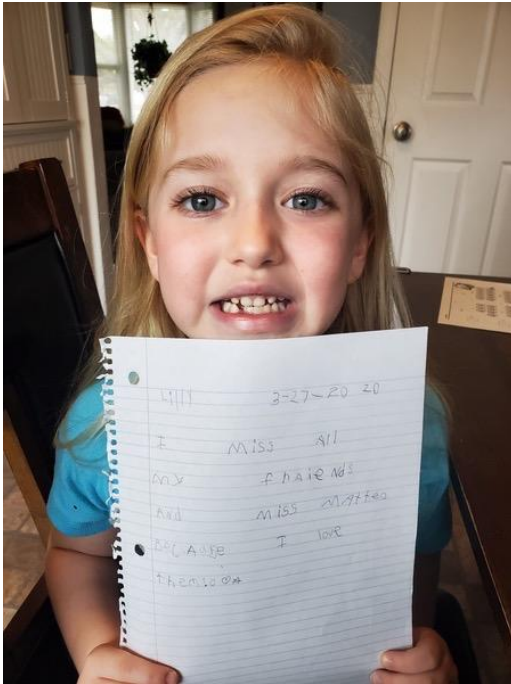 Lilli 3-27-20 20
I miss All
my fhAieNds
And miss mattea
BecAuse I love
them